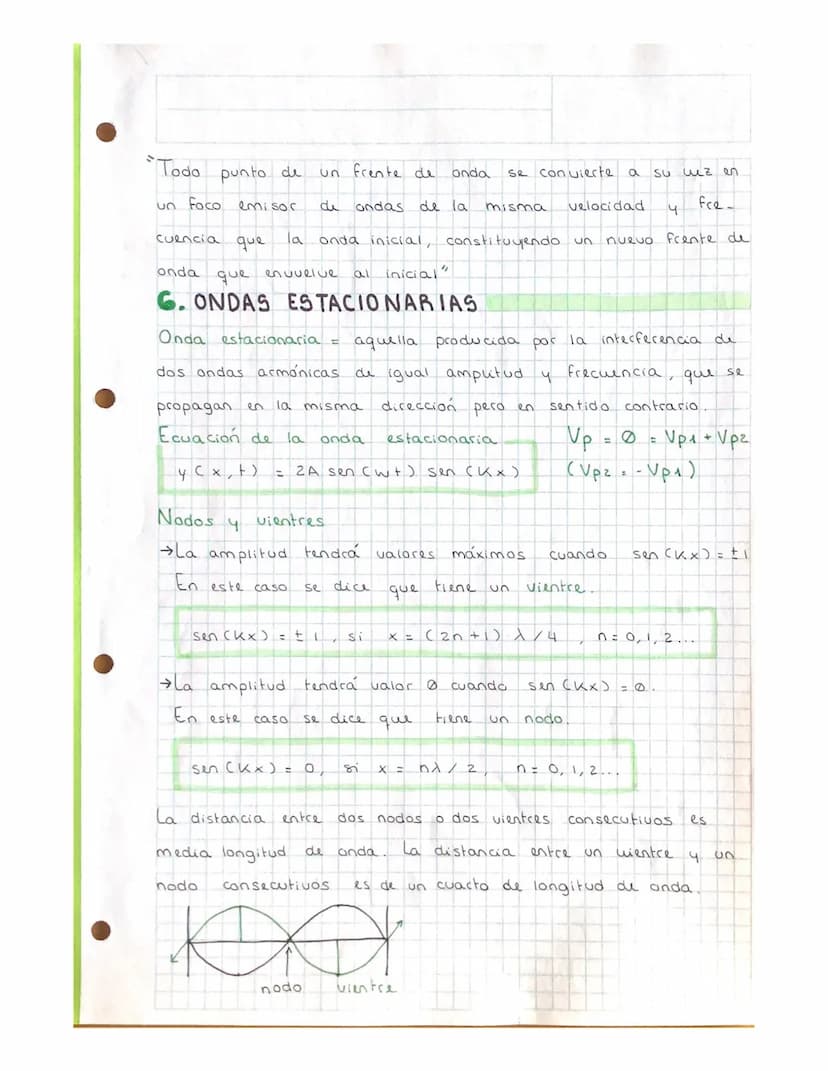 "Todo punto de un frente de onda se convierte a su vez en
un foco emisor de ondas de la misma velocidad y fre-
cuencia que la onda inicial, constituyendo un nuevo frente de
onda que envuelve al inicial"
6. ONDAS ESTACIONARIAS
Onda estacionaria = aquella producida por la interferencia de
dos ondas armónicas de igual amplitud y frecuencia, que se
propagan en la misma dirección pero en sentido contrario.
Ecuación de la onda estacionaria Vp = Ø = Vp1 + Vp2
y(x,t) = 2A sen(wt) sen(Kx) (Vp2 = -Vp1)
Nodos y vientres
→La amplitud tendrá valores máximos cuando sen(Kx) = ±1
En este caso se dice que tiene un vientre.
sen(Kx) = ±1, si x = (2n+1) λ/4, n = 0,1,2...
→La amplitud tendrá valor Ø cuando sen(Kx) = 0.
En este caso se dice que tiene un nodo.
sen(Kx) = 0, si x = nλ/2, n = 0,1,2...
La distancia entre dos nodos o dos vientres consecutivos es
media longitud de onda. La distancia entre un vientre y un
nodo consecutivos es de un cuarto de longitud de onda.
nodo vientre